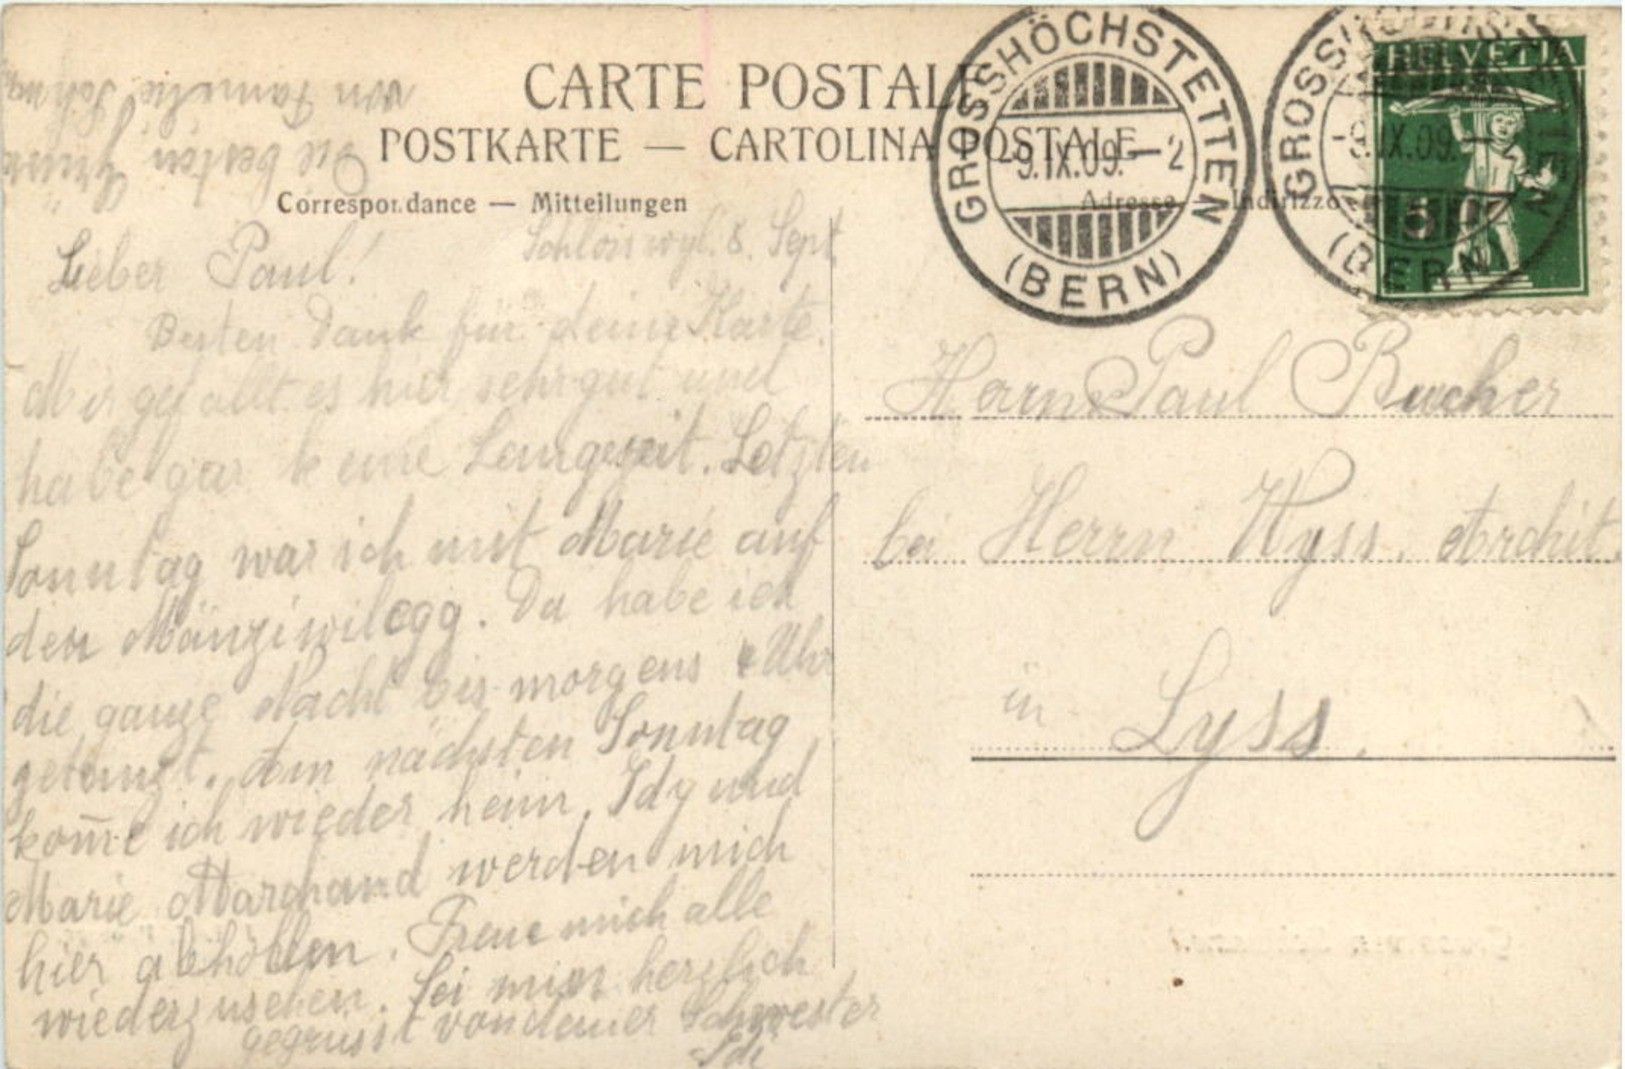 CARTE POSTALE
POSTKARTE — CARTOLINA POSTALE
Correspondance — Mitteilungen
Adresse — Indirizzo
GROSSHÖCHSTETTEN
-9.IX.09.-2
(BERN)
GROSSHÖCHSTETTEN
-9.IX.09.-
(BERN)
HELVETIA
5
Die besten
von Familie
Schloss wyl. 8. Sept
Lieber Paul!
Besten Dank für deine Karte.
Mir gefällt es hier sehr gut und
habe gar keine Langezeit. Letzten
Sonntag war ich mit Marie auf
der Mänziwilegg. Da habe ich
die ganze Nacht bis morgens Uhr
getanzt. Am nächsten Sonntag
kom̅e ich wieder heim. Idy und
Marie Marchand werden mich
hier abhohlen. Freue mich alle
wiederzusehen. Sei mir herzlich
gegrüsst von deiner Schwester
Herrn Paul Bucher
bei Herrn Wyss, Archit.
in Lyss.